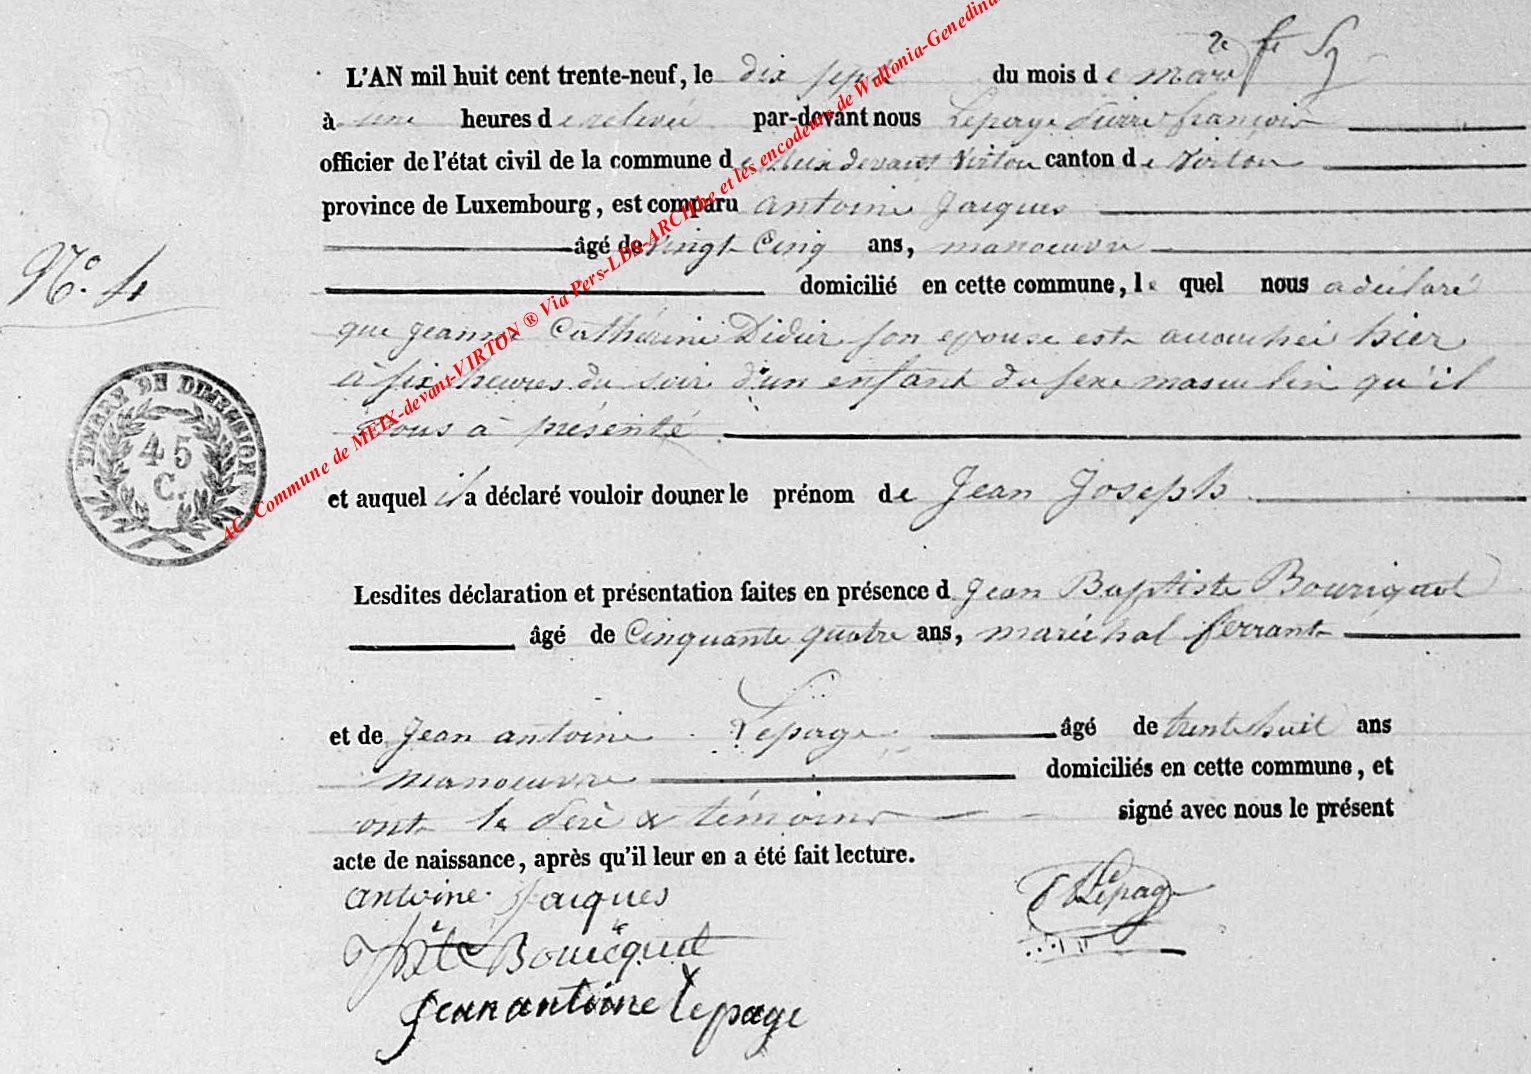 2e ft Sg
L'AN mil huit cent trente-neuf, le dix sept du mois de mars
à une heures de relevée par-devant nous Lepage Pierre françois
officier de l'état civil de la commune de Meix devant Virton canton de Virton
province de Luxembourg, est comparu antoine Jacques
âgé de vingt Cinq ans, manoeuvre
N.° 4
domicilié en cette commune, le quel nous a déclaré
que jeanne Catherine Didier son epouse est accouchée hier
à six heures du soir d'un enfant du sexe masculin qu'il
nous à présenté
TIMBRE DE DIMENSION
45
C.
et auquel il a déclaré vouloir douner le prénom de Jean Joseph
Lesdites déclaration et présentation faites en présence d Jean Baptiste Bouriquet
âgé de Cinquante quatre ans, maréchal ferrant
et de Jean antoine Lepage âgé de trente huit ans
manoeuvre domiciliés en cette commune, et
ont le père & témoins signé avec nous le présent
acte de naissance, après qu'il leur en a été fait lecture.
antoine Jacques
Lepage
Bouriquet
Jean antoine Lepage
AC. Commune de MEIX-devant-VIRTON ® Via Pers-LDS-ARCH.be et les encodeurs de Wallonia-Genedina